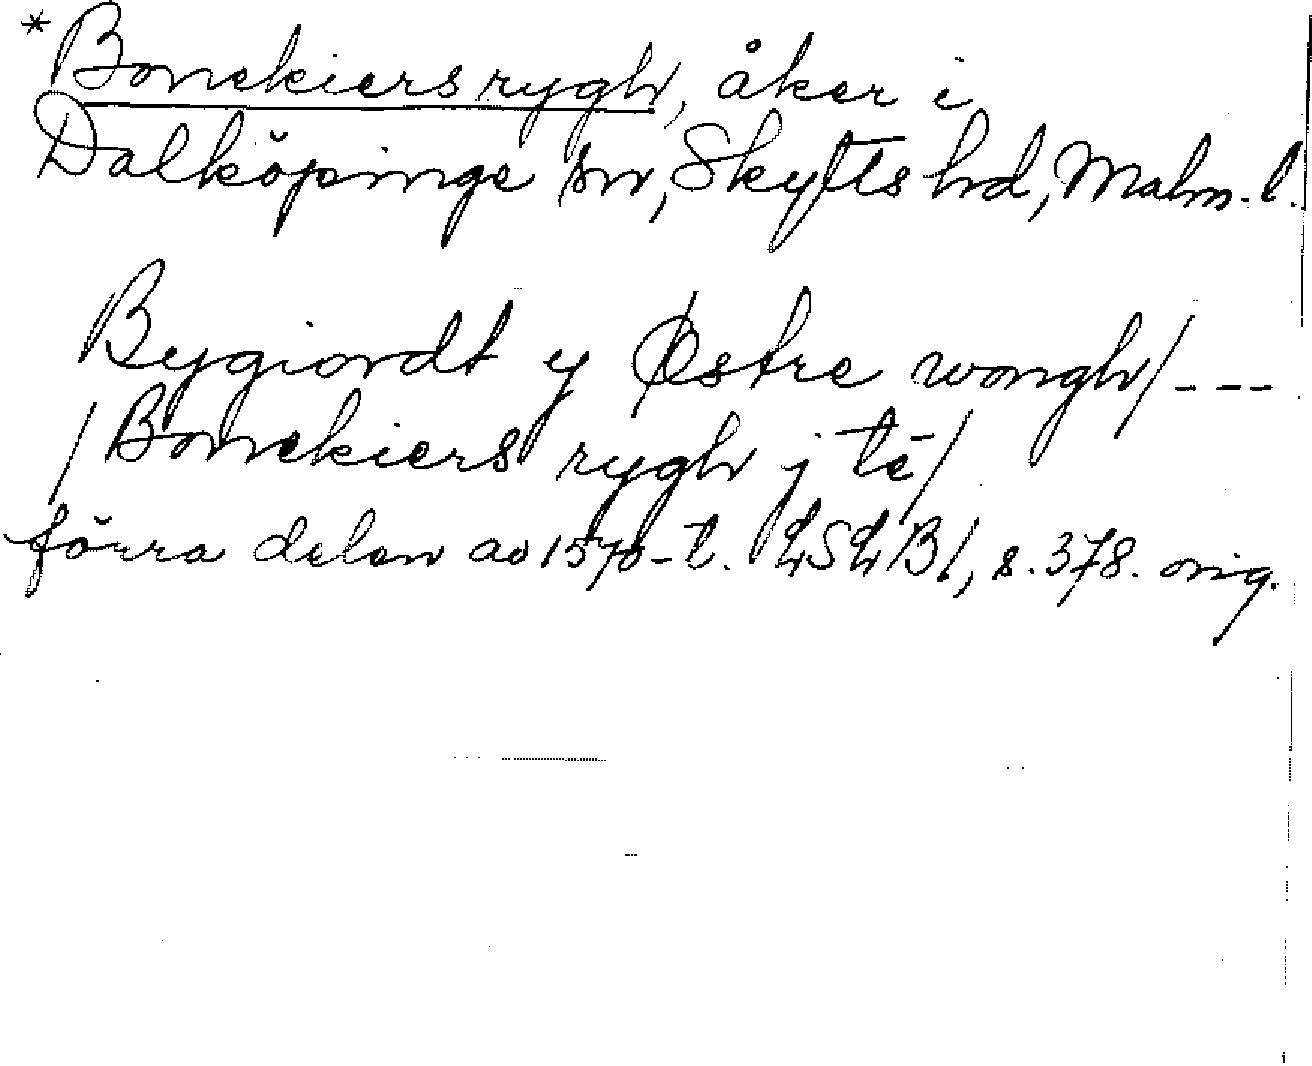 *Bonekiers rygh, åker i
Dalköpinge sn, Skytts hd, Malm. l.
Bygiordt y Østre wongh/---
/Bonekiers rygh j tē/
förra delen av 1570-t. LSLB1, s. 378. orig.